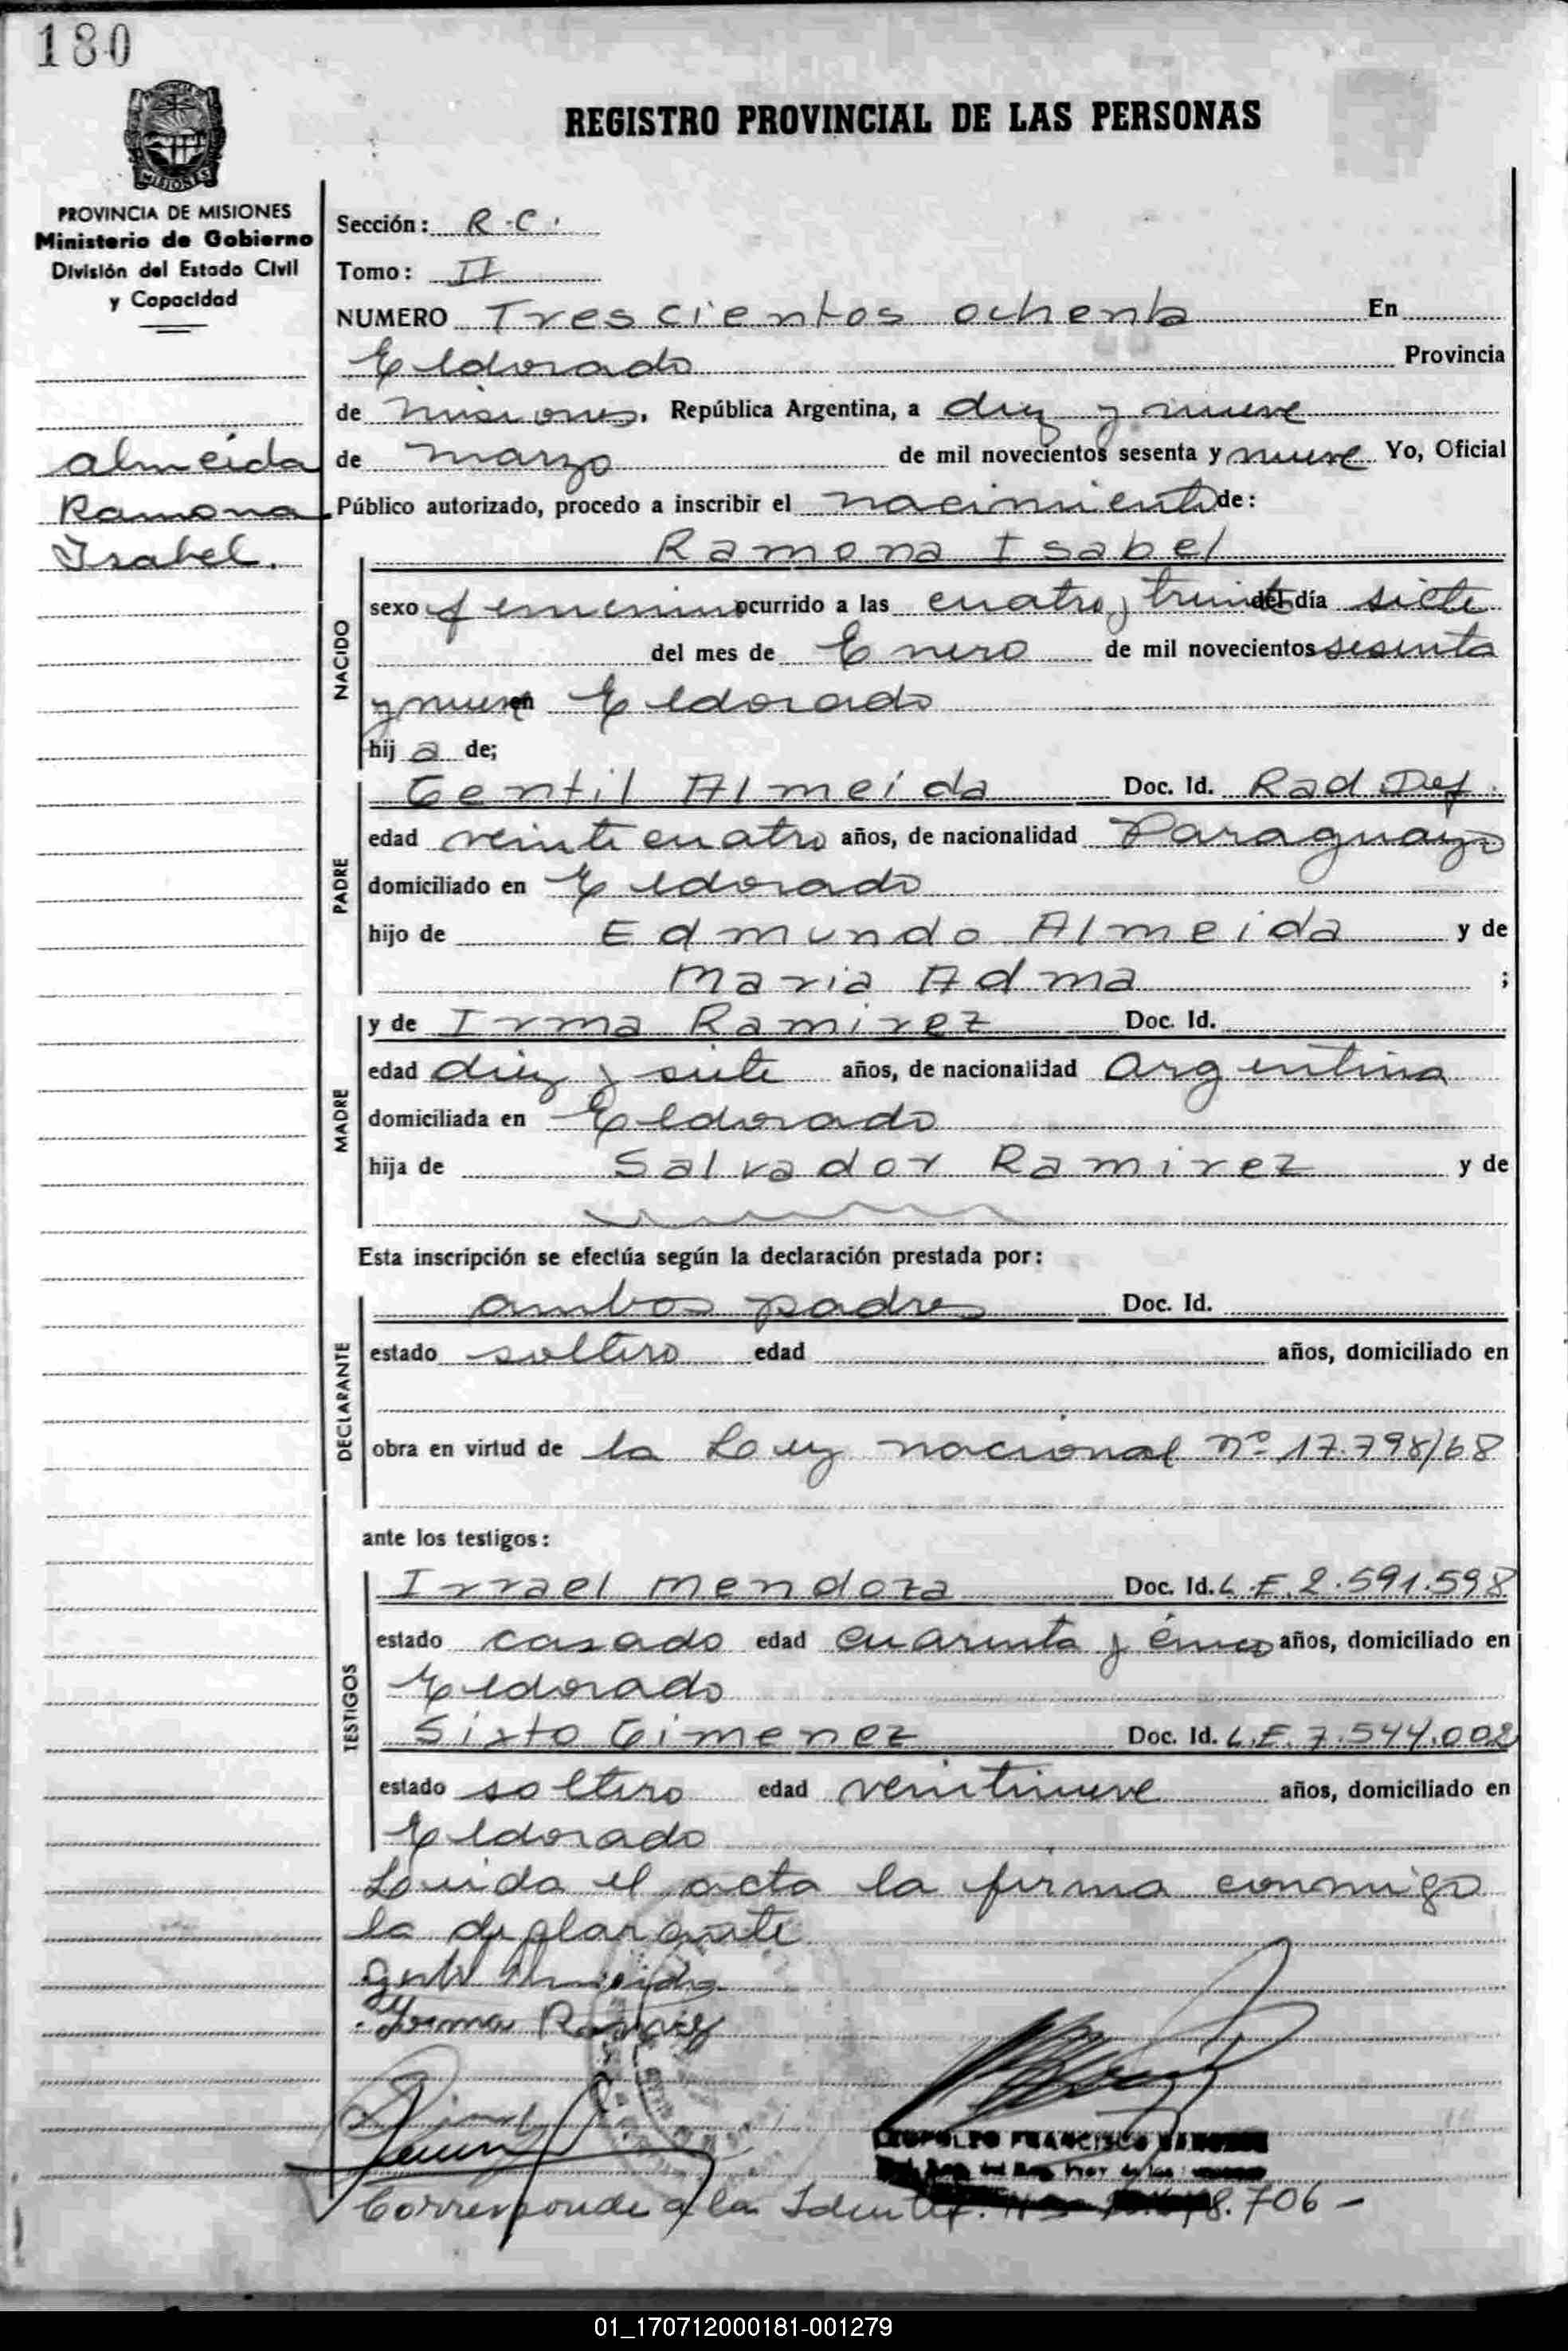 180
MISIONES
REGISTRO PROVINCIAL DE LAS PERSONAS
PROVINCIA DE MISIONES
Ministerio de Gobierno
División del Estado Civil
y Capacidad
Almeida
Ramona
Isabel.
Sección: R.C.
Tomo: II
NUMERO Trescientos ochenta En
Eldorado Provincia
de Misiones, República Argentina, a diez y nueve
de marzo de mil novecientos sesenta y nueve Yo, Oficial
Público autorizado, procedo a inscribir el nacimiento de:
Ramona Isabel
NACIDO
sexo femenino ocurrido a las cuatro y treinta del día siete
del mes de Enero de mil novecientos sesenta
y nueve en Eldorado
hij a de;
PADRE
Gentil Almeida Doc. Id. Rad Def.
edad veinte cuatro años, de nacionalidad Paraguayo
domiciliado en Eldorado
hijo de Edmundo Almeida y de
Maria Adma ;
MADRE
y de Irma Ramirez Doc. Id.
edad diez y siete años, de nacionalidad Argentina
domiciliada en Eldorado
hija de Salvador Ramirez y de
Esta inscripción se efectúa según la declaración prestada por:
DECLARANTE
ambos padres Doc. Id.
estado soltero edad años, domiciliado en
obra en virtud de la Ley nacional nº 17.798/68
ante los testigos:
TESTIGOS
Irrael Mendoza Doc. Id. L.E. 2.591.598
estado casado edad cuarenta y cinco años, domiciliado en
Eldorado
Sixto Gimenez Doc. Id. L.E. 7.544.002
estado soltero edad veintinueve años, domiciliado en
Eldorado
Leida el acta la firma conmigo
la declarante
Almeida
Irma Ramirez
LEOPOLDO FRANCISCO
Corresponde a la Identif. Nº 8.706 -
01_170712000181-001279